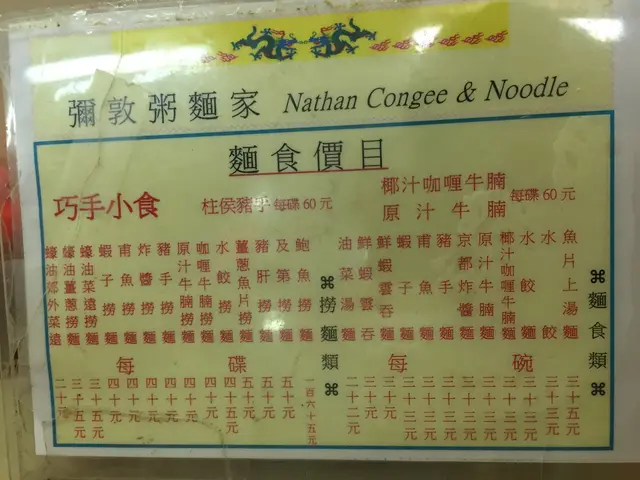 彌敦粥麵家 Nathan Congee & Noodle
麵食價目
巧手小食
柱侯豬手 每碟60元
椰汁咖喱牛腩
原汁牛腩
每碟60元
⌘麵食類⌘
魚片上湯麵
水餃
水餃麵
椰汁咖喱牛腩麵
原汁牛腩麵
京都炸醬麵
豬手麵
甫魚麵
蝦子麵
鮮蝦雲吞麵
鮮蝦雲吞
油菜湯麵
每碗
三十五元
三十元
三十三元
三十三元
三十三元
三十三元
三十三元
三十三元
三十元
三十元
二十二元
⌘撈麵類⌘
鮑魚撈麵
及第撈麵
豬肝撈麵
薑蔥魚片撈麵
水餃撈麵
咖喱牛腩撈麵
原汁牛腩撈麵
豬手撈麵
炸醬撈麵
甫魚撈麵
蝦子撈麵
蠔油菜遠撈麵
蠔油薑蔥撈麵
蠔油郊外菜遠
每碟
一百六十五元
五十元
五十元
四十五元
四十元
四十元
四十元
四十元
四十元
三十五元
二十元